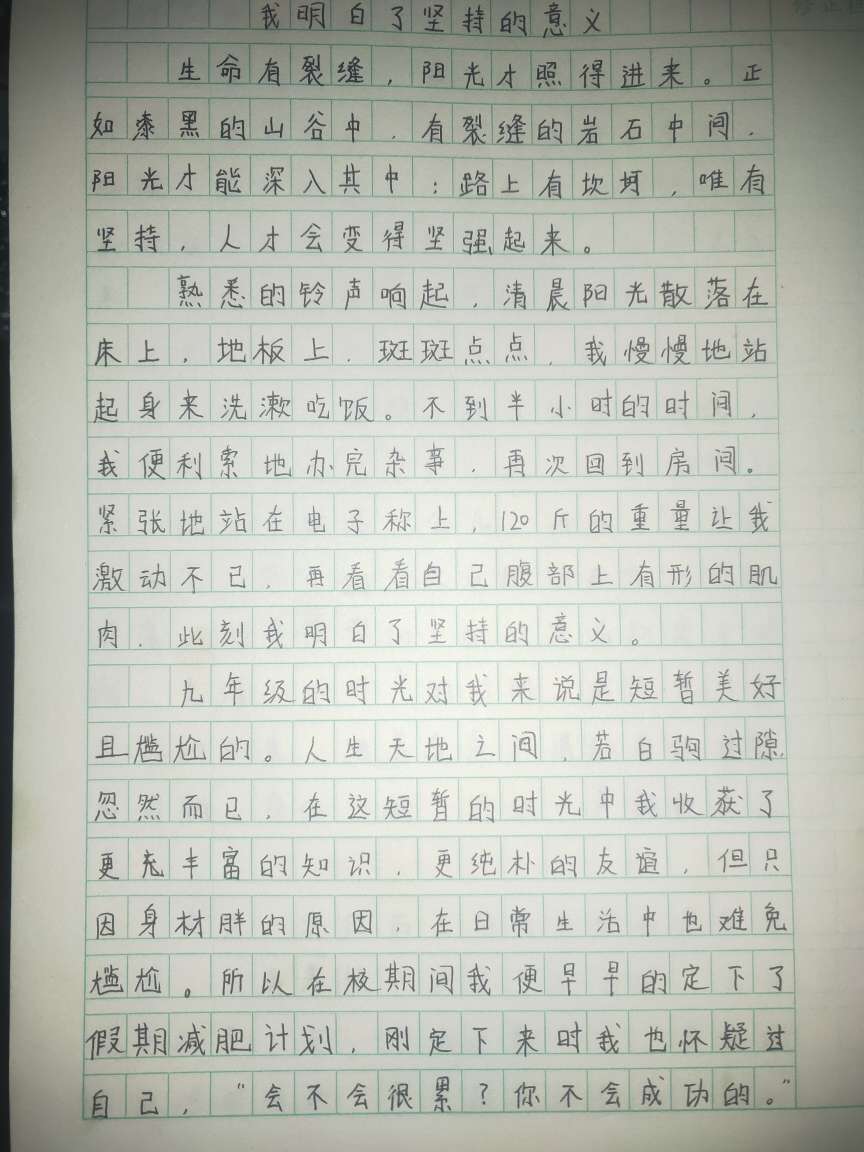 我明白了坚持的意义
生命有裂缝，阳光才照得进来。正
如漆黑的山谷中，有裂缝的岩石中间，
阳光才能深入其中；路上有坎坷，唯有
坚持，人才会变得坚强起来。
熟悉的铃声响起，清晨阳光散落在
床上，地板上，斑斑点点，我慢慢地站
起身来洗漱吃饭。不到半小时的时间，
我便利索地办完杂事，再次回到房间。
紧张地站在电子称上，120斤的重量让我
激动不已，再看看自己腹部上有形的肌
肉，此刻我明白了坚持的意义。
九年级的时光对我来说是短暂美好
且尴尬的。人生天地之间，若白驹过隙，
忽然而已，在这短暂的时光中我收获了
更充丰富的知识，更纯朴的友谊，但只
因身材胖的原因，在日常生活中也难免
尴尬。所以在校期间我便早早的定下了
假期减肥计划，刚定下来时我也怀疑过
自己，“会不会很累？你不会成功的。”